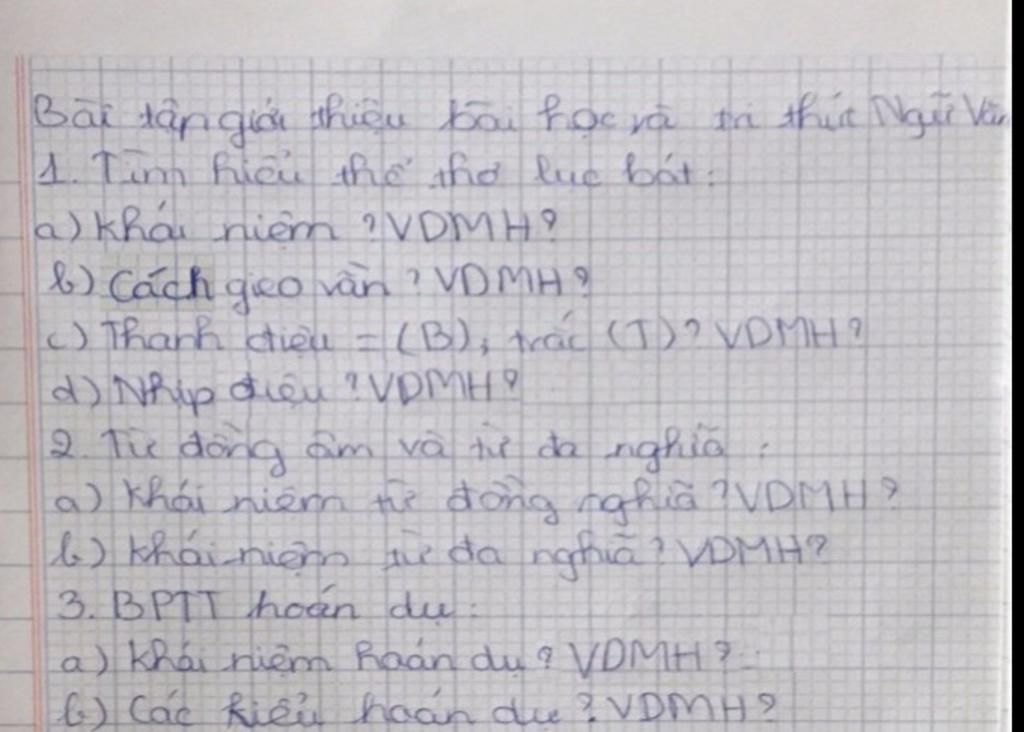 Bài tập giới thiệu bài học và tri thức Ngữ Văn
1. Tìm hiểu thể thơ lục bát:
a) Khái niệm ? VDMH?
b) Cách gieo vần ? VDMH?
c) Thanh điệu = (B), trắc (T)? VDMH?
d) Nhịp điệu ? VDMH?
2. Từ đồng âm và từ đa nghĩa :
a) Khái niệm từ đồng nghĩa ? VDMH?
b) Khái niệm từ đa nghĩa? VDMH?
3. BPTT hoán dụ :
a) Khái niệm hoán dụ ? VDMH?
b) Các kiểu hoán dụ ? VDMH?